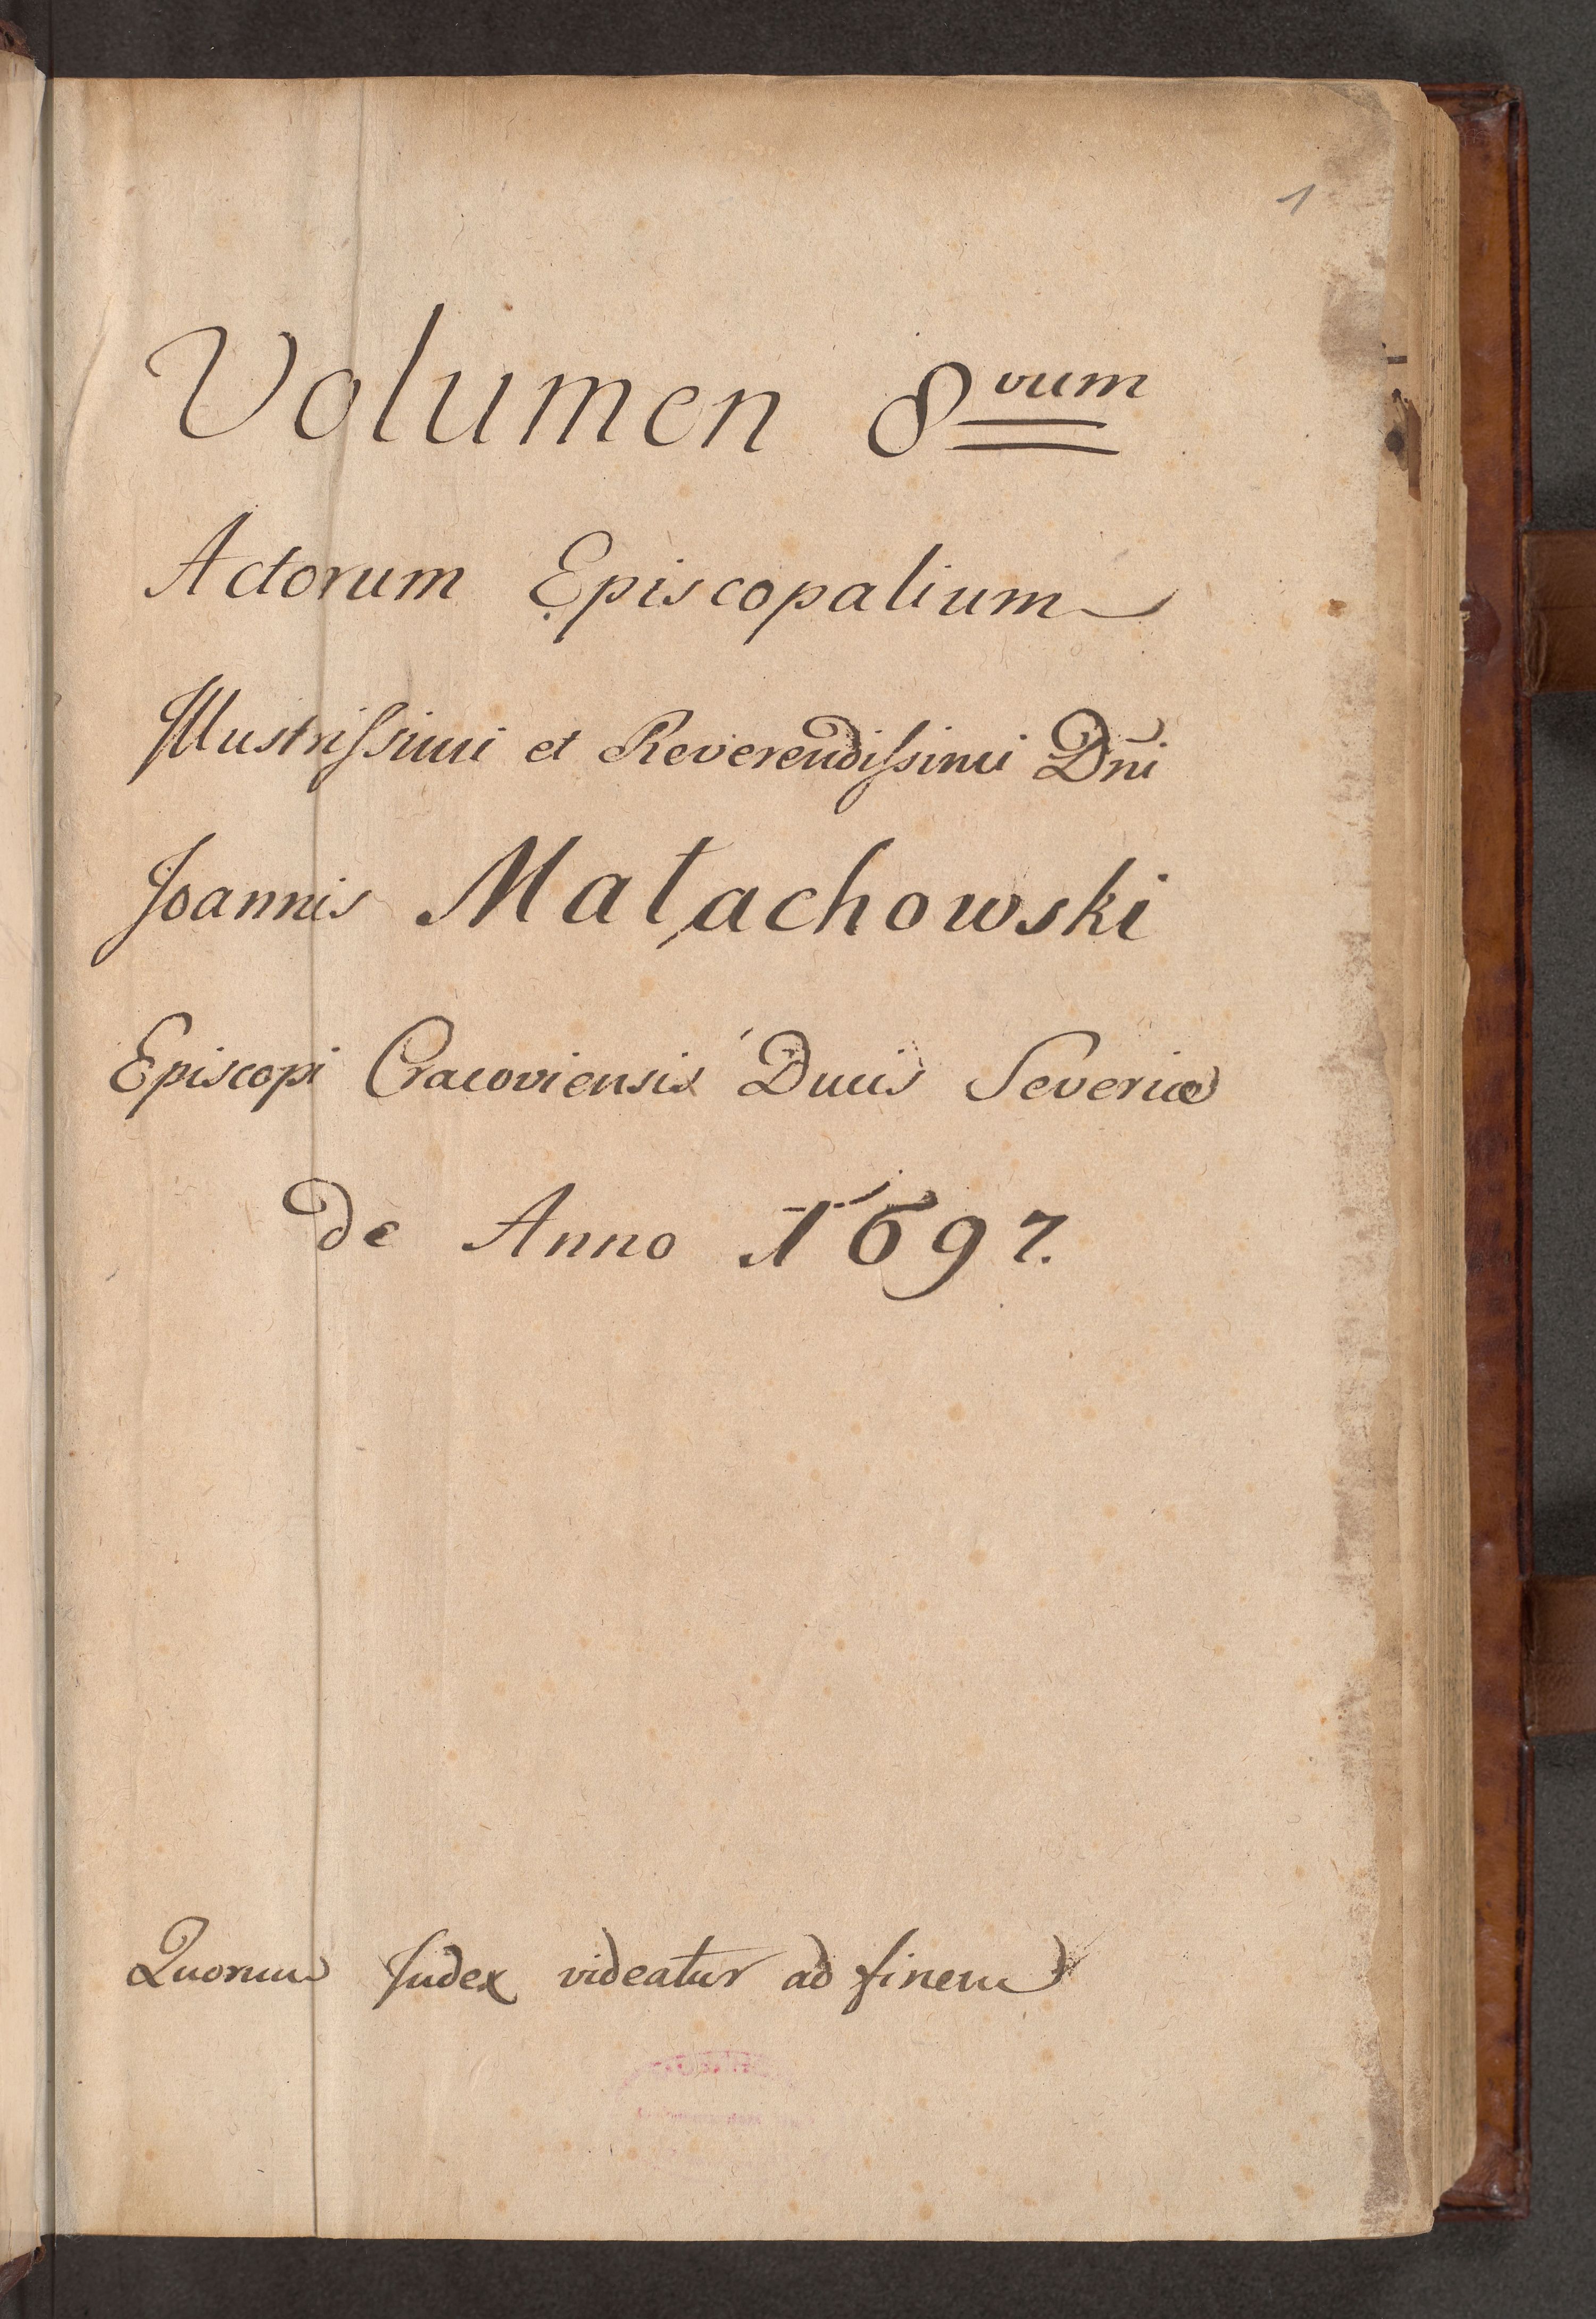 1
Volumen 8vum
Actorum Episcopalium
Illustrissimi et Reverendissimi Dñi
Joannis Małachowski
Episcopi Cracoviensis Ducis Severiæ
de Anno 1697.
Quorum Index videatur ad finem